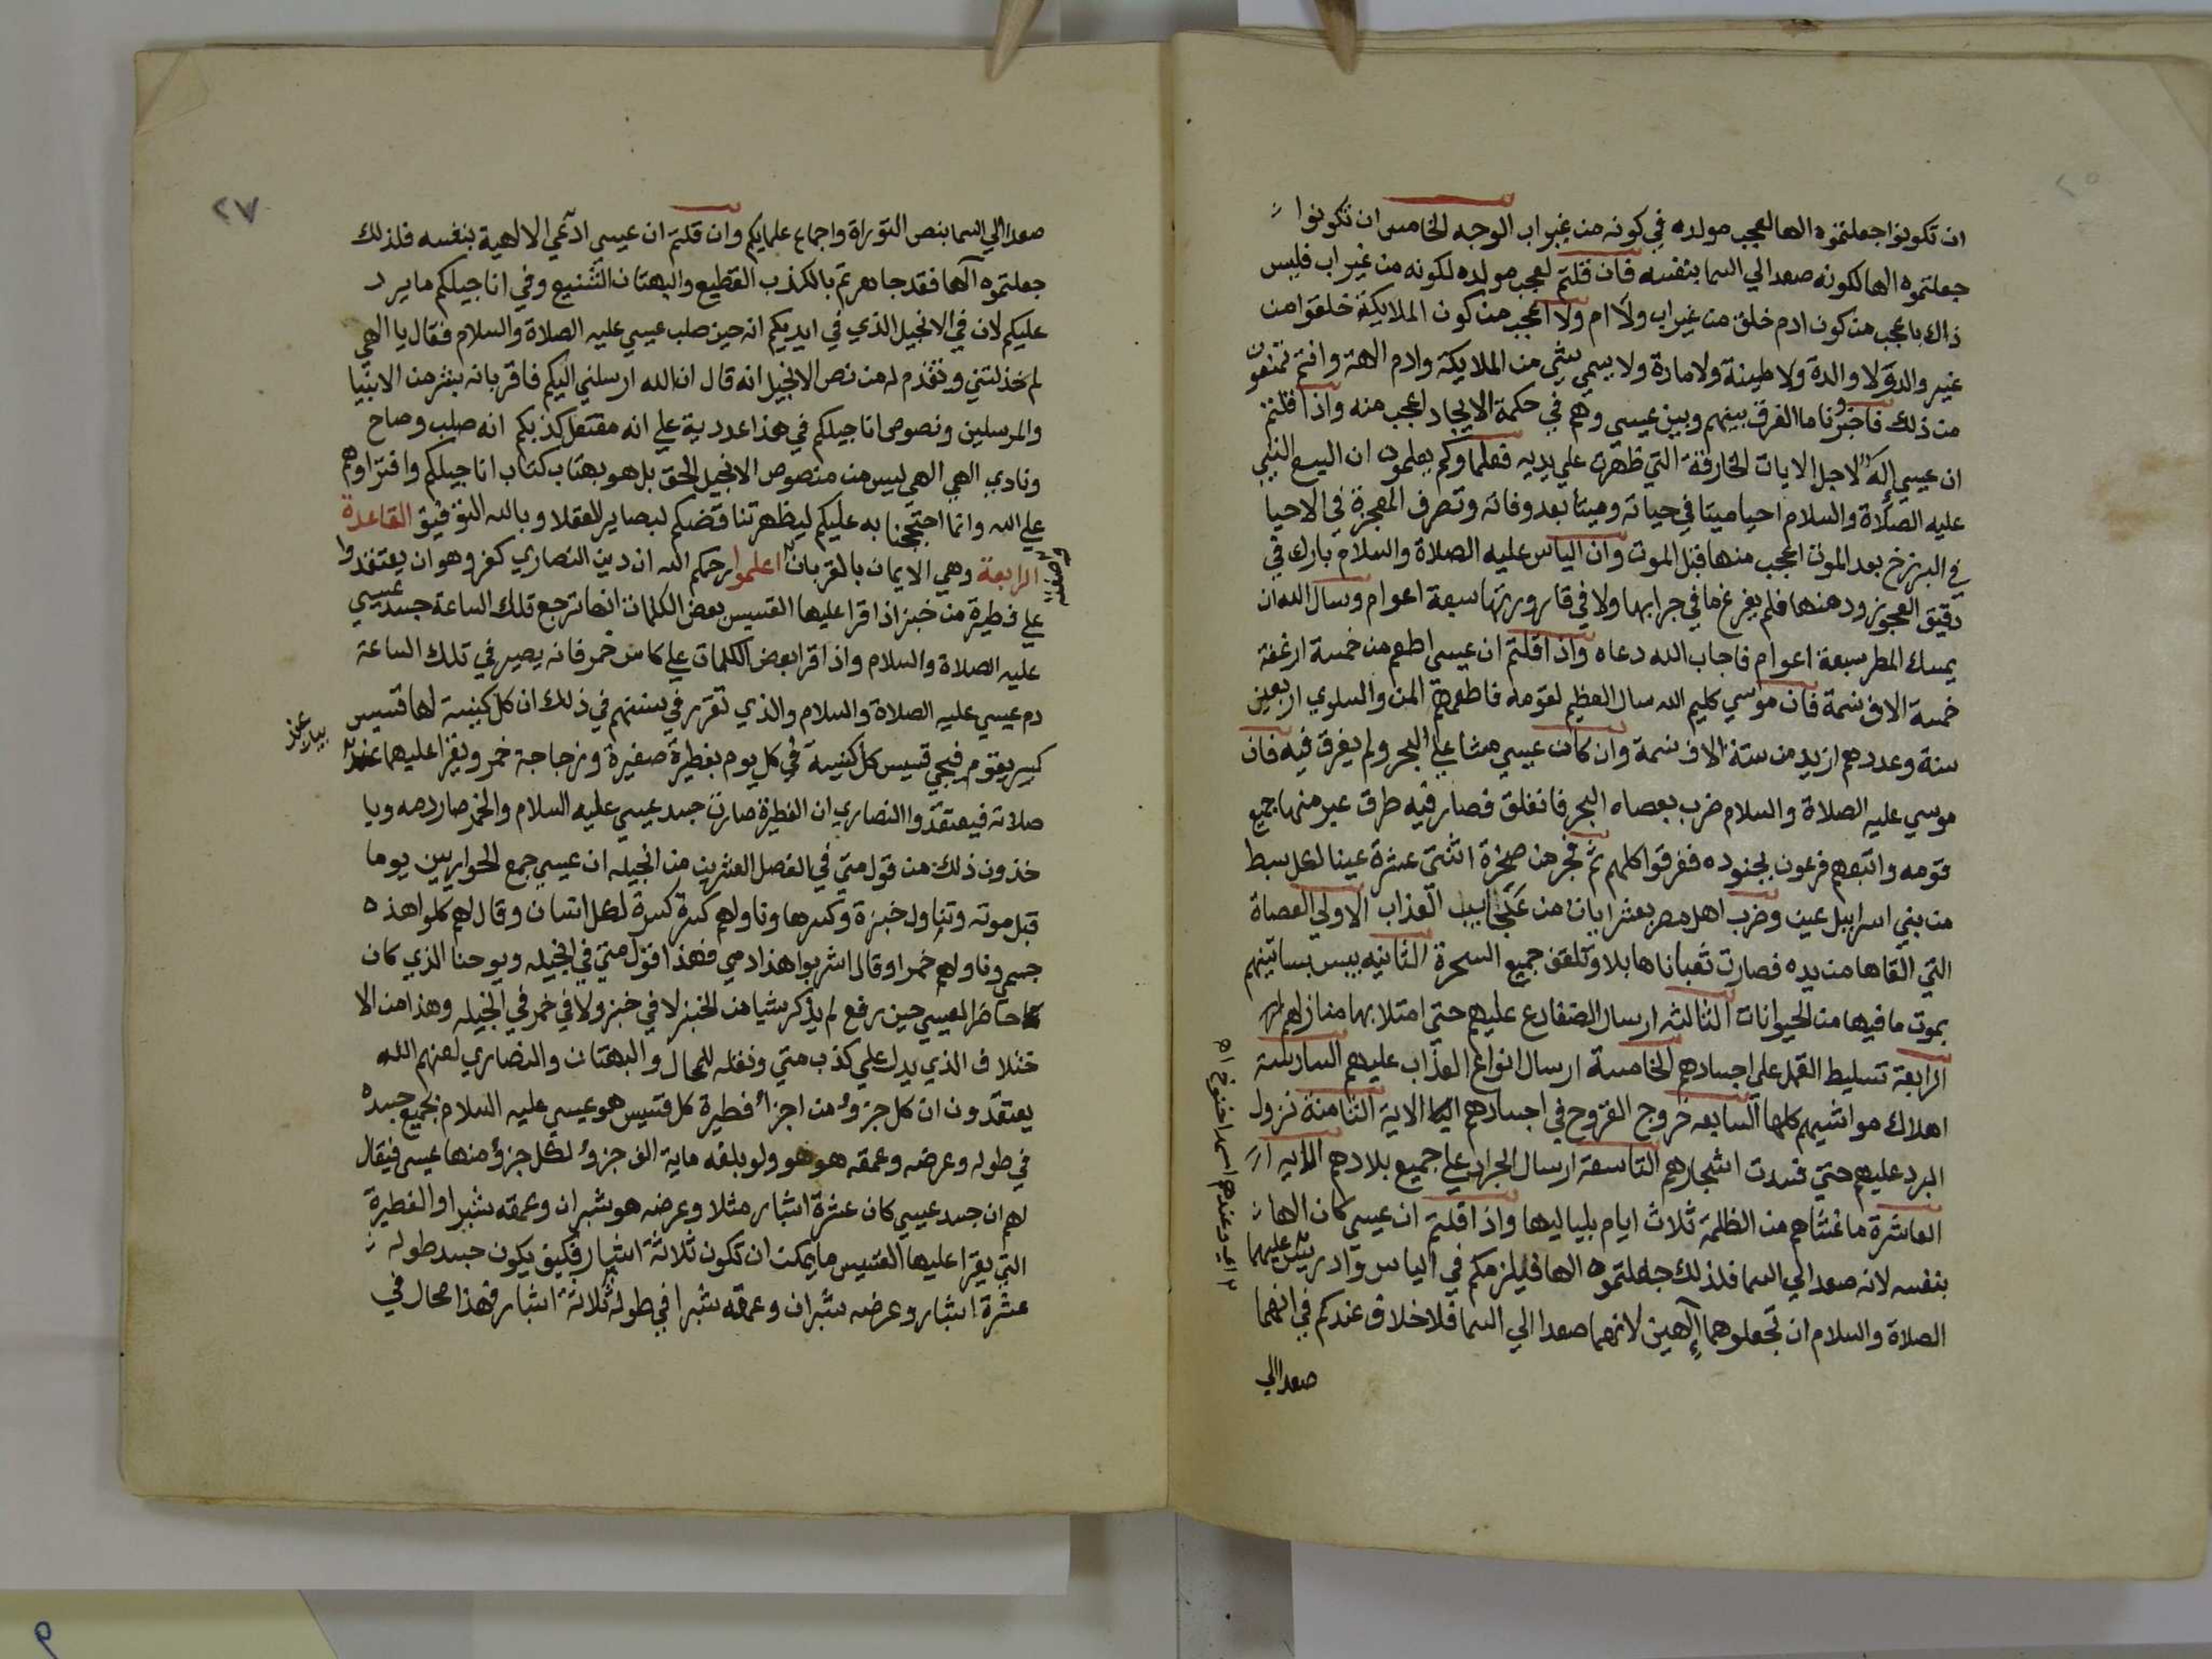 ان تكونوا جعلتموه الها لعجب مولده في كونه من غير اب الوجه الخامس ان تكونوا
جعلتموه الها لكونه صعد الي السما بنفسه فان قلتم لعجب مولده لكونه من غير اب فليس
ذاك باعجب من كون ادم خلق من غير اب ولا ام ولا اعجب من كون الملايكة خلقوا من
غير والد ولا والدة ولا طينة ولا مادة ولا يسمي شي من الملايكة وادم الهة وانتم تمنعون
من ذلك فاخبرونا ما الفرق بينهم وبين عيسي وهم في حكمة الايجاد اعجب منه واذا قلتم
ان عيسي إله لاجل الايات الخارقة التي ظهرت علي يديه فعلماوكم يعلمون ان اليسع النبي
عليه الصلاة والسلام احيا ميتا في حياته وميتا بعد وفاته وتصرف المعجزة في الاحيا
في البرزخ بعد الموت اعجب منها قبل الموت وان الياس عليه الصلاة والسلام بارك في
دقيق العجوز ودهنها فلم يفرغ ما في جرابها ولا في قارورتها سبعة اعوام وسال الله ان
يمسك المطر سبعة اعوام فاجاب الله دعاه واذا قلتم ان عيسي اطعم من خمسة ارغفة
خمسة الاف نسمة فان موسي كليم الله سال العظيم لقومه فاطعمهم المن والسلوي اربعين
سنة وعددهم ازيد من ستة الاف نسمة وان كان عيسي مشا علي البحر ولم يغرق فيه فان
موسي عليه الصلاة والسلام ضرب بعصاه البحر فانفلق فصار فيه طرق عبر منها جميع
قومه واتبعهم فرعون بجنوده فغرقوا كلهم ثم فجر من صخرة اثنتي عشرة عينا لكل سبط
من بني اسراييل عين وضرب اهل مصر بعشر ايات من العذاب الاولي العصاة
التي القاها من يده فصارت ثعبانا هايلا وتلقف جميع السحرة الثانيه يبس بساتينهم
بموت ما فيها من الحيوانات الثالثه ارسال الضفادع عليهم حتي امتلا بها منازلهم
الرابعة تسليط القمل علي اجسادهم الخامسة ارسال انواع العذاب عليهم السادسة
اهلاك مواشيهم كلها السابعه خروج القروح في اجسادهم الاية الثامنة نزول
البرد عليهم حتي فسدت اشجارهم التاسعة ارسال الجراد علي جميع بلادهم الايه
العاشرة ما غشاهم من الظلمة ثلاث ايام بلياليها واذا قلتم ان عيسي كان الها
بنفسه لانه صعد الي السما فلذلك جعلتموه الها فيلزمكم في الياس وادريس عليهما
الصلاة والسلام ان تجعلوهما إلهين لانهما صعدا الي السما فلا خلاف عندكم في انهما
صعدا الي
اي وعندهم اسمه اخنوخ اه
٢٧
صعدا الي السما بنص التوراة واجماع علمايكم وان قلتم ان عيسي ادعي الالهية بنفسه فلذلك
جعلتموه آلها فقد جاهرتم بالكذب الفظيع والبهتان الشنيع وفي اناجيلكم ما يرد
عليكم لان في الانجيل الذي في ايديكم انه حين صلب عيسي عليه الصلاة والسلام فقال يا الهي
لم خذلتني وتقدم له من نص الانجيل انه قال ان الله ارسلني اليكم فاقر بانه بشر من الانبيا
والمرسلين ونصوص اناجيلكم في هذا عددية علي انه مفتعل كذبكم انه صلب وصاح
ونادي الهي الهي ليس من منصوص الانجيل الحق بل هو بهتان كتاب اناجيلكم وافتراوهم
علي الله وانما احتججنا به عليكم ليظهر تناقضكم لبصاير العقلا وبالله التوفيق القاعدة
الرابعة وهي الايمان بالقربان اعلموا رحمكم الله ان دين النصاري كفر وهو ان يعتقدوا
علي فطيرة من خبز اذا قرا عليها القسيس بعض الكلمات انها ترجع تلك الساعة جسد عيسي
عليه الصلاة والسلام واذا قرا بعض الكلمات علي كاس خمر فانه يصير في تلك الساعة
دم عيسي عليه الصلاة والسلام والذي تقرر في سننهم في ذلك ان كل كنيسة لها قسيس
كبير يقوم فيجي قسيس كل كنيسة في كل يوم بفطيرة صغيرة وزجاجة خمر ويقرا عليهما عند
بيان عند
صلاته فيعتقدوا النصاري ان الفطيرة صارت جسد عيسي عليه السلام والخمر صار دمه ويا
خذون ذلك من قول متي في الفصل العشرين من انجيله ان عيسي جمع الحواريين يوما
قبل موته وتناول خبزة وكسرها وناولهم كسرة كسرة لكل انسان وقال لهم كلوا هذه
جسمي وناولهم خمرا وقال اشربوا هذا دمي فهذا قول متي في انجيله ويوحنا الذي كان
حاضرا لعيسي حين رفع لم يذكر شيا من الخبز لا في خبز ولا في خمر في انجيله وهذا من الا
ختلاف الذي يدل علي كذب متي ونقله المحال والبهتان والنصاري لعنهم الله
يعتقدون ان كل جزؤ من اجزأ فطيرة كل قسيس هو عيسي عليه السلام بجميع جسده
في طوله وعرضه وعمقه هو هو ولو بلغه ماية الف جزؤ لكل جزؤ منها عيسي فيقال
لهم ان جسد عيسي كان عشرة اشبار مثلا وعرضه هو شبران وعمقه شبرا والفطيرة
التي يقرا عليها القسيس ما يمكن ان تكون ثلاثة اشبار فكيف يكون جسد طوله
عشرة اشبار وعرضه شبران وعمقه شبرا في طوله ثلاثة اشبار فهذا محال في